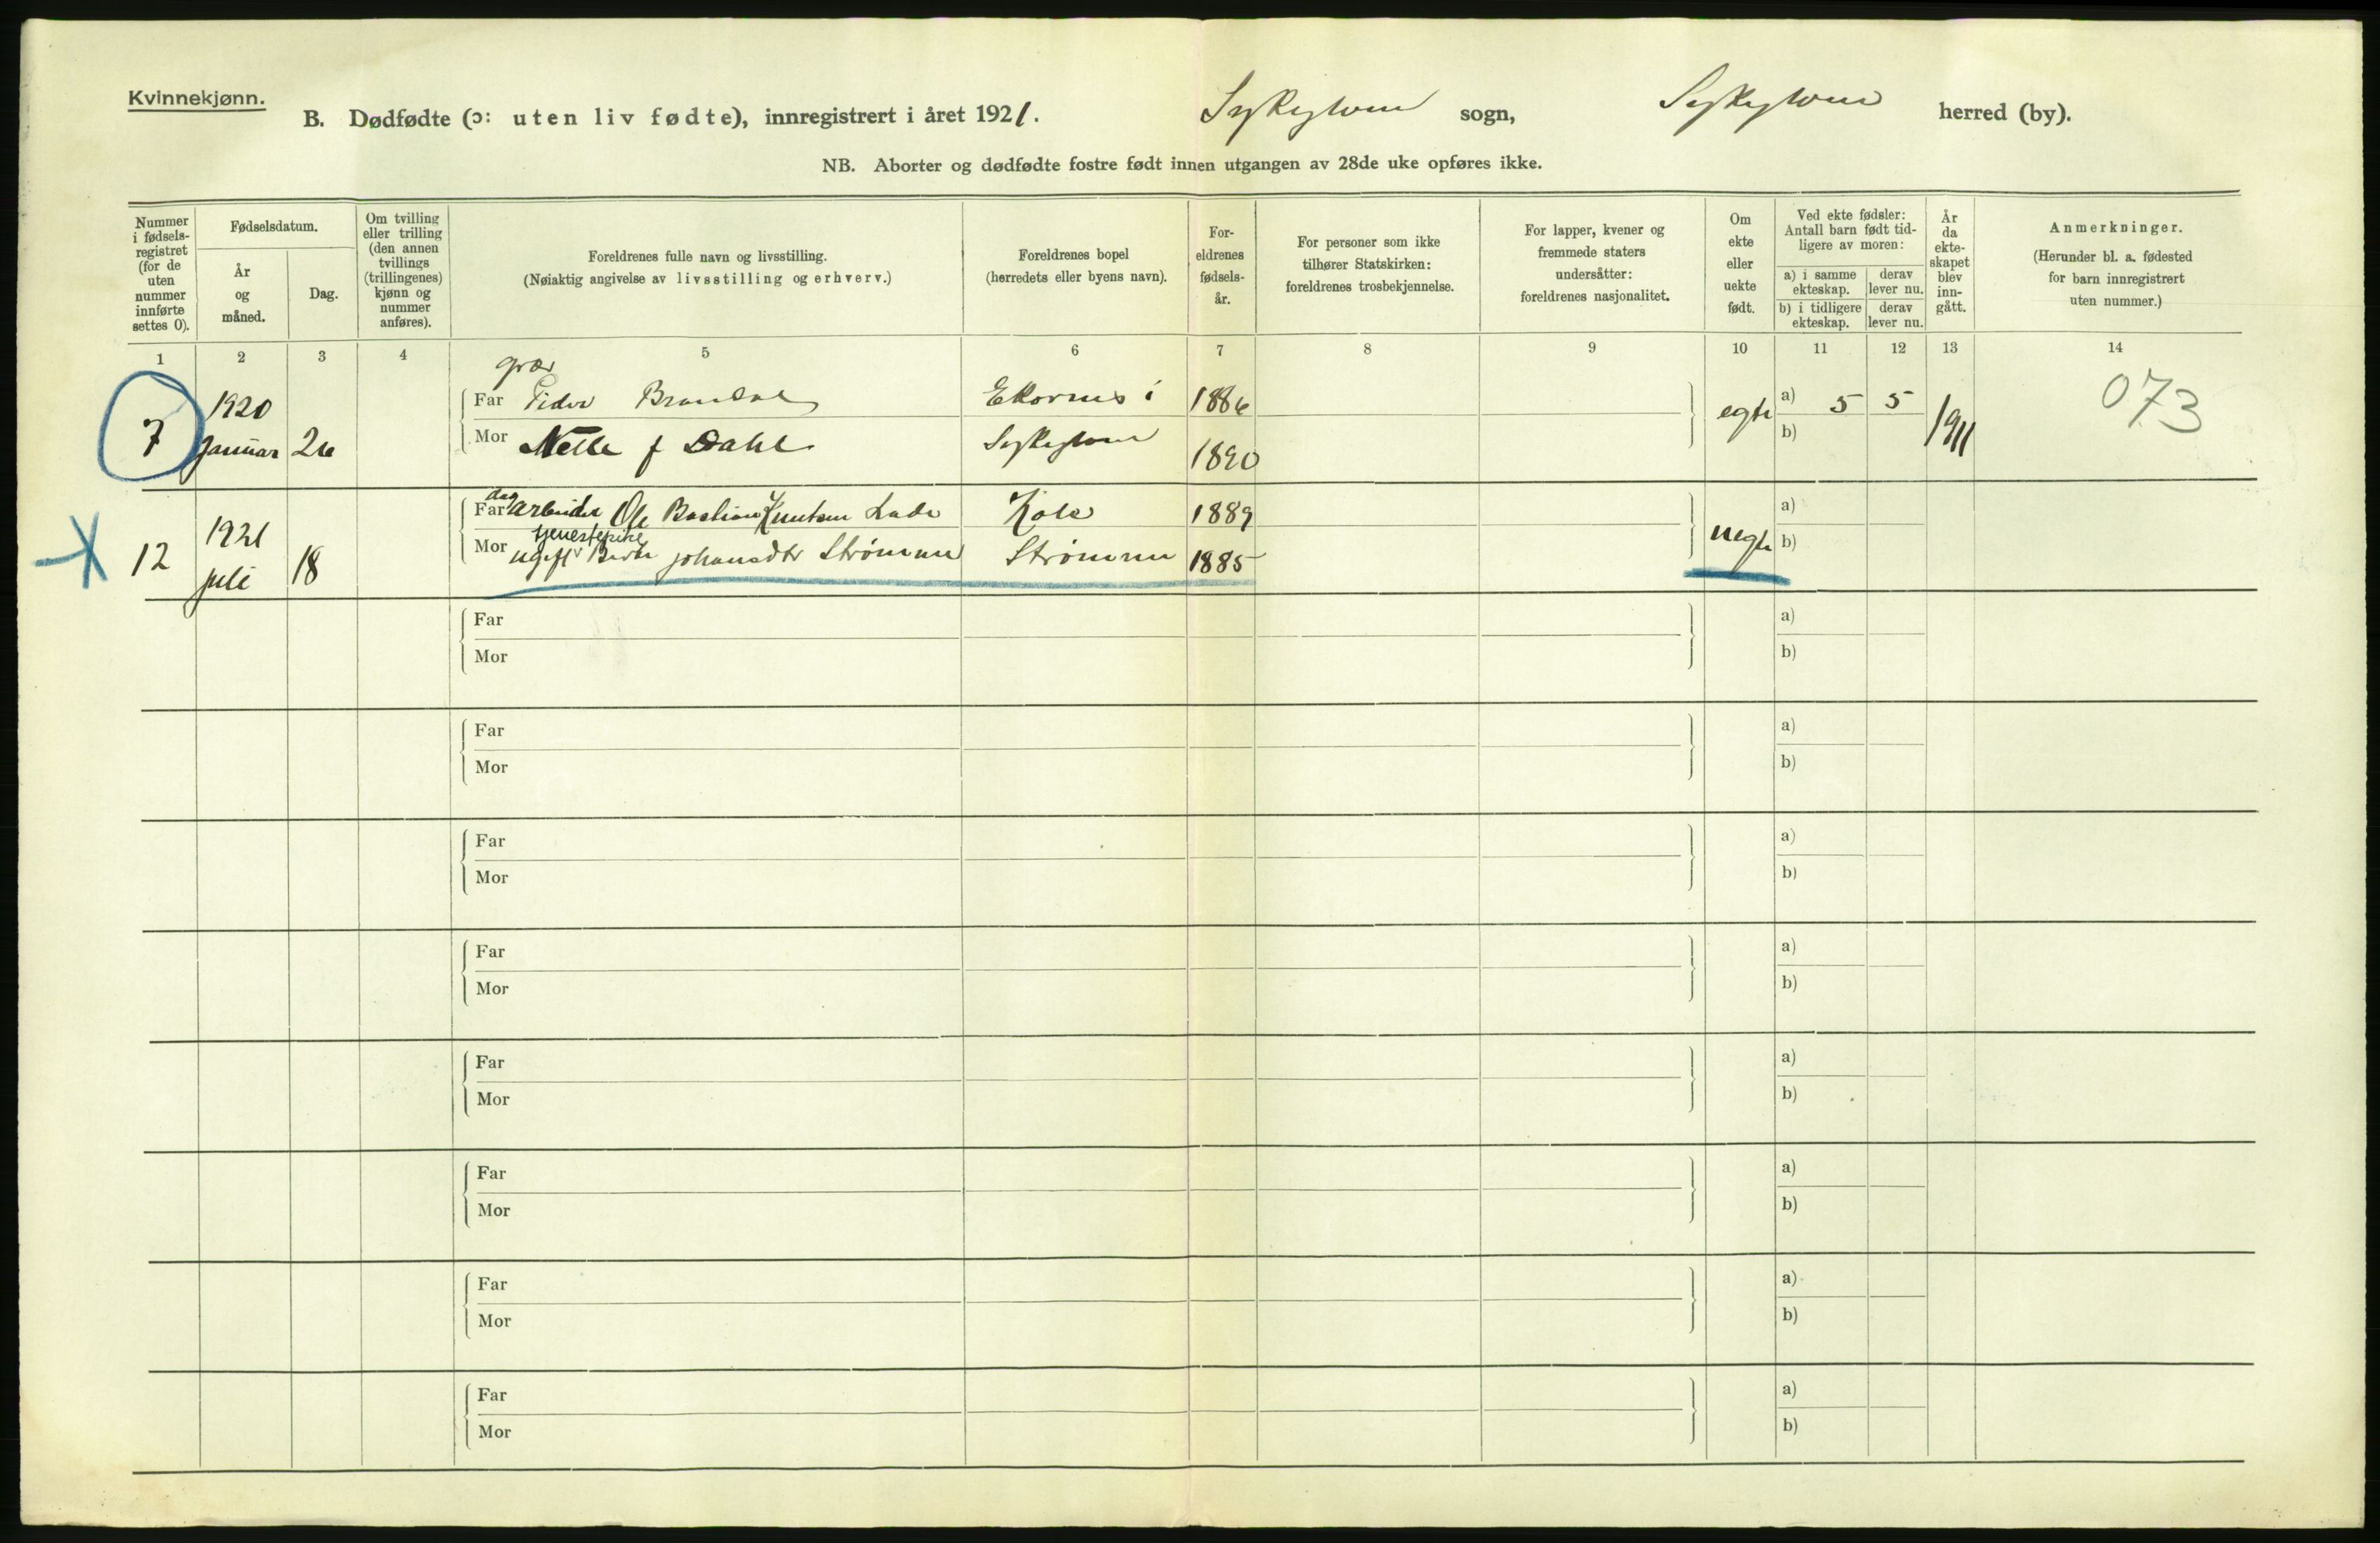 Kvinnekjønn.
B. Dødfødte (ɔ: uten liv fødte), innregistrert i året 1921. Sykkylven sogn, Sykkylven herred (by).
NB. Aborter og dødfødte fostre født innen utgangen av 28de uke opføres ikke.
Nummer i fødsels-registret (for de uten nummer innførte settes 0).
Fødselsdatum.
År og måned.
Dag.
Om tvilling eller trilling (den annen tvillings (trillingenes) kjønn og nummer anføres).
Foreldrenes fulle navn og livsstilling.
(Nøiaktig angivelse av livsstilling og erhverv.)
Foreldrenes bopel
(herredets eller byens navn).
For-eldrenes fødsels-år.
For personer som ikke tilhører Statskirken: foreldrenes trosbekjennelse.
For lapper, kvener og fremmede staters undersåtter: foreldrenes nasjonalitet.
Om ekte eller uekte født.
Ved ekte fødsler: Antall barn født tid-ligere av moren:
a) i samme ekteskap.
derav lever nu.
b) i tidligere ekteskap.
derav lever nu.
År da ekte-skapet blev inn-gått.
Anmerkninger.
(Herunder bl. a. fødested for barn innregistrert uten nummer.)
1 2 3 4 5 6 7 8 9 10 11 12 13 14
7 1920 januar 26
Far Peder Brandal Ekornes i 1886
Mor Nelle f Dahl Sykkylven 1890
egte a) 5 5 b) 1911
073
12 1921 juli 18
Far arbeider Ole Bastian Knutsen Lade 1889
tjenestepike
Mor ugift Johansdtr Strømme Strømme 1885
uegte a) b)
Far a)
Mor b)
Far a)
Mor b)
Far a)
Mor b)
Far a)
Mor b)
Far a)
Mor b)
Far a)
Mor b)
Far a)
Mor b)
Far a)
Mor b)